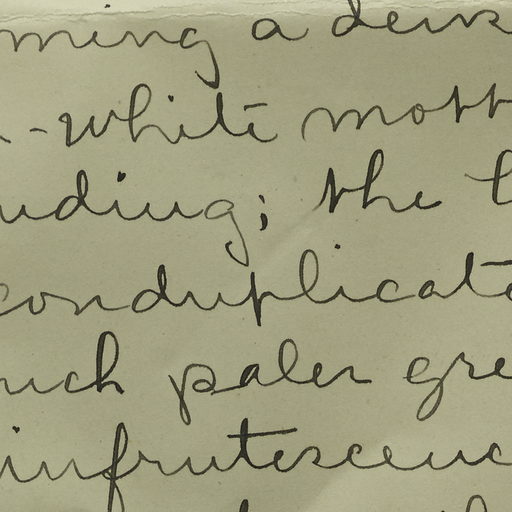 ming a dens
-white mott
uding; the l
conduplicat
uch paler gre
infrutescenc